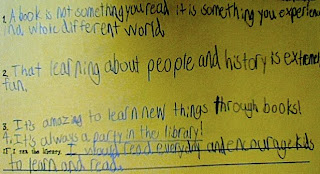 1. A book is not something you read it is something you experience
ina whole different world.
2. That learning about people and history is extremely
fun.
3. It's amazing to learn new things through books!
4. It's always a party in the library!
If I ran the library I would read everyday and encourage kids
to learn and read.